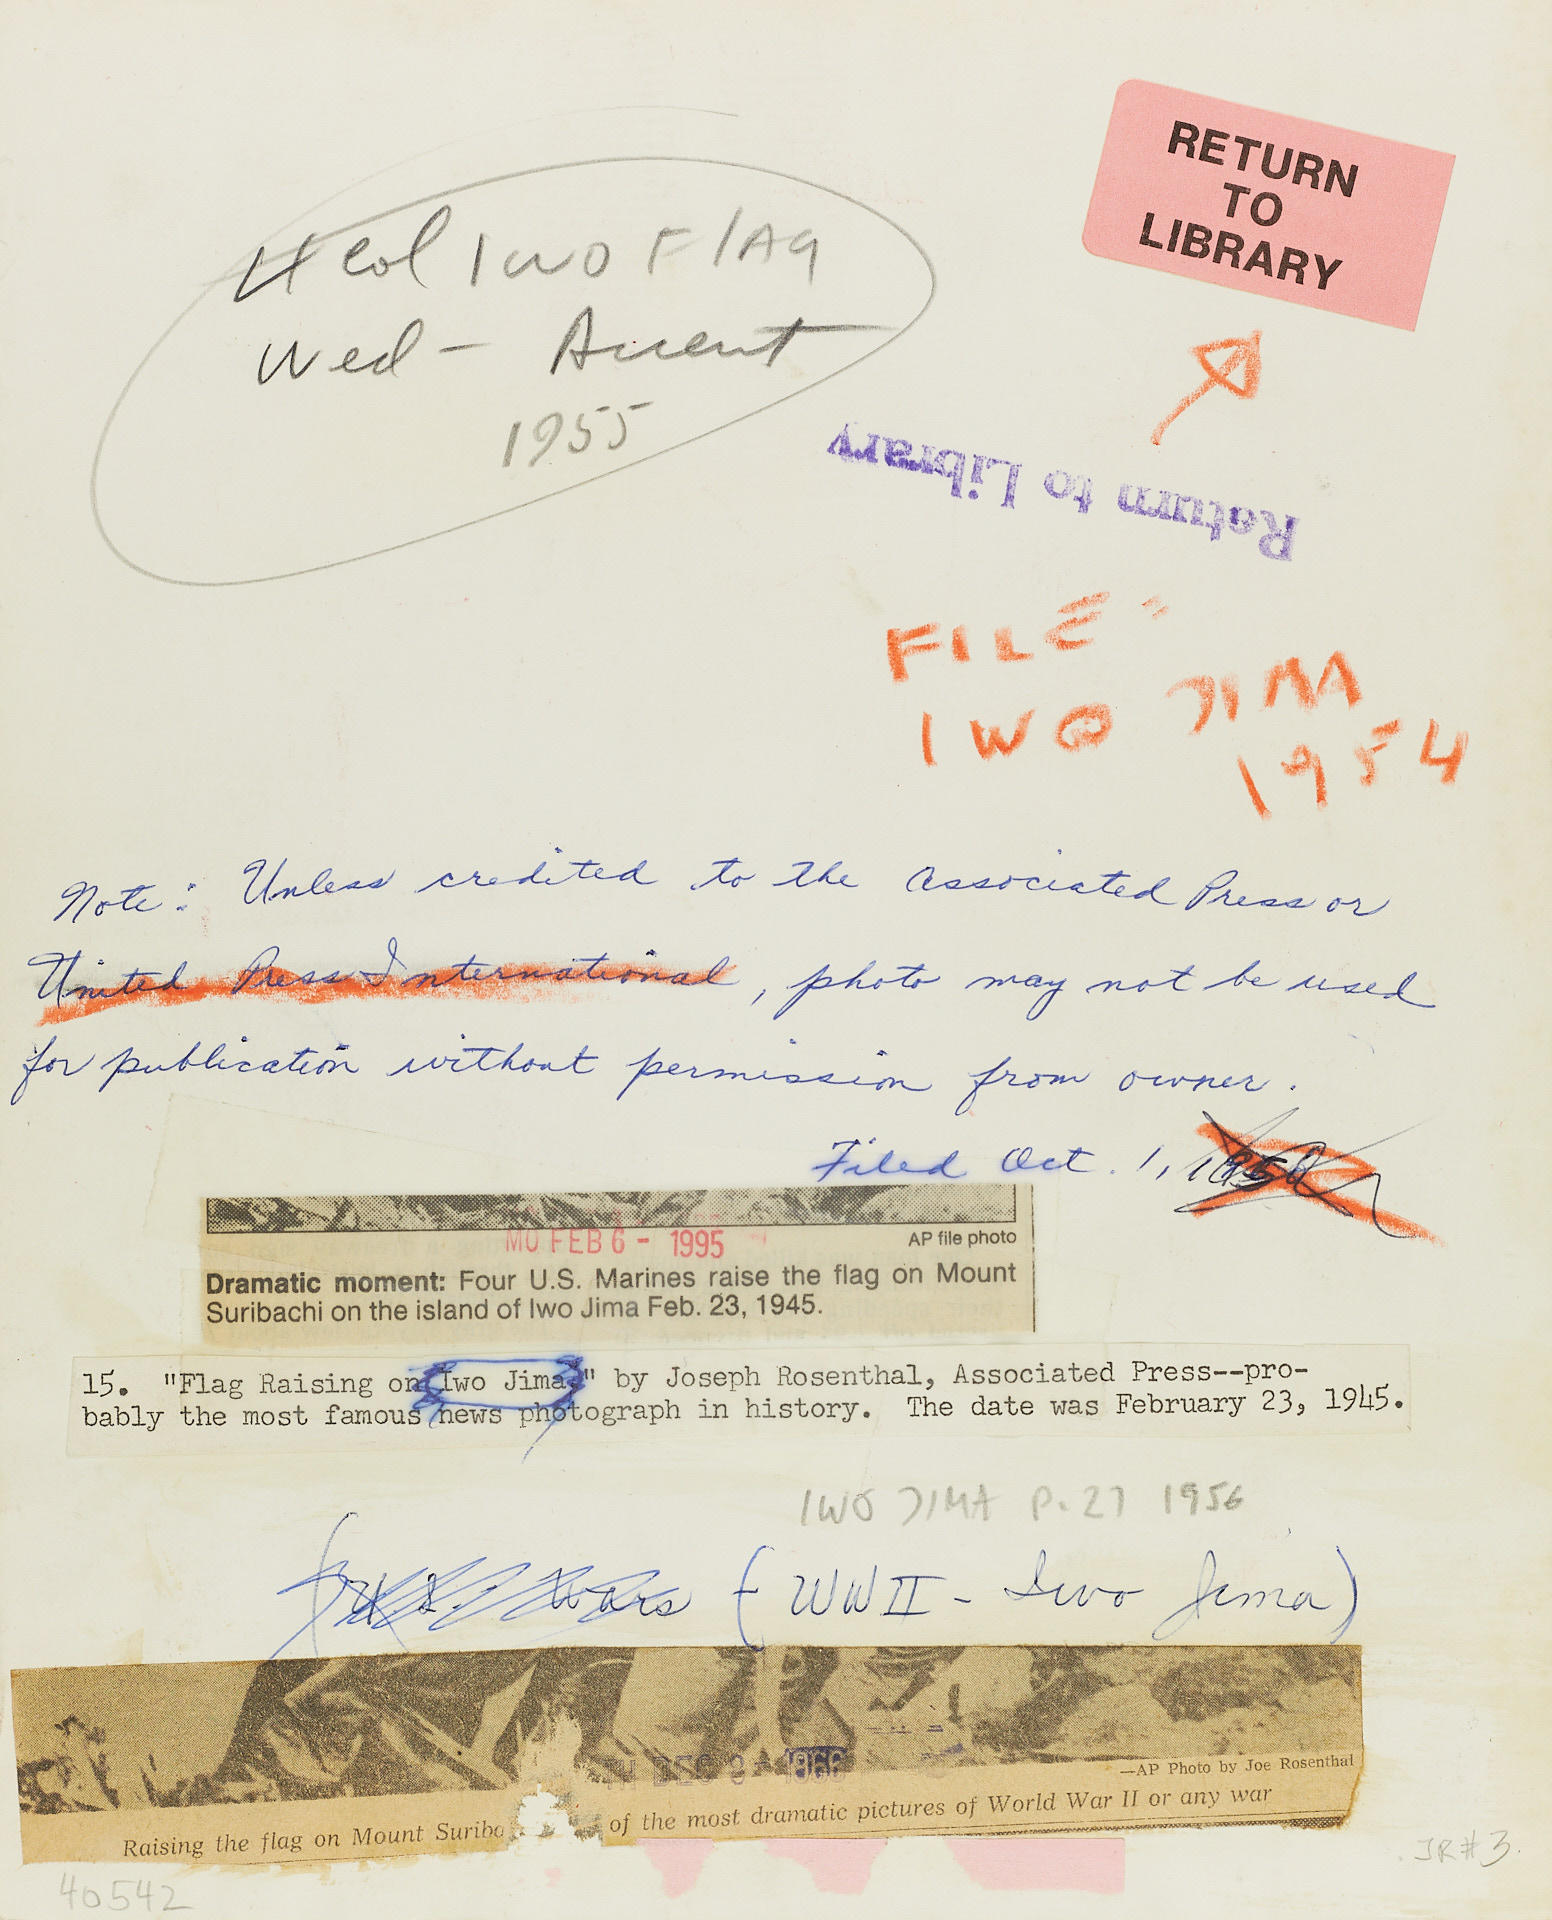 RETURN
TO
LIBRARY
4 col IWO FlAg
Wed - Accent
1955
Return to Library
FILE
IWO JIMA
1954
Note: Unless credited to the Associated Press or
United Press International, photo may not be used
for publication without permission from owner.
Filed Oct. 1,
MO FEB 6 - 1995
AP file photo
Dramatic moment: Four U.S. Marines raise the flag on Mount
Suribachi on the island of Iwo Jima Feb. 23, 1945.
15. "Flag Raising on Iwo Jima," by Joseph Rosenthal, Associated Press--pro-
bably the most famous news photograph in history. The date was February 23, 1945.
IWO JIMA P. 27 1956
U.S. Wars (WWII - Iwo Jima)
TH DEC 1966
—AP Photo by Joe Rosenthal
Raising the flag on Mount Suriba of the most dramatic pictures of World War II or any war
JR#3
40542